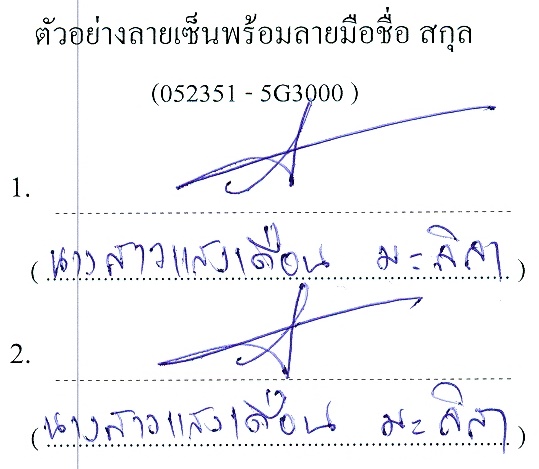 ตัวอย่างลายเซ็นพร้อมลายมือชื่อ สกุล
(052351 - 5G3000 )
1.
( นางสาวแสงเดือน มะลิลา )
2.
( นางสาวแสงเดือน มะลิลา )